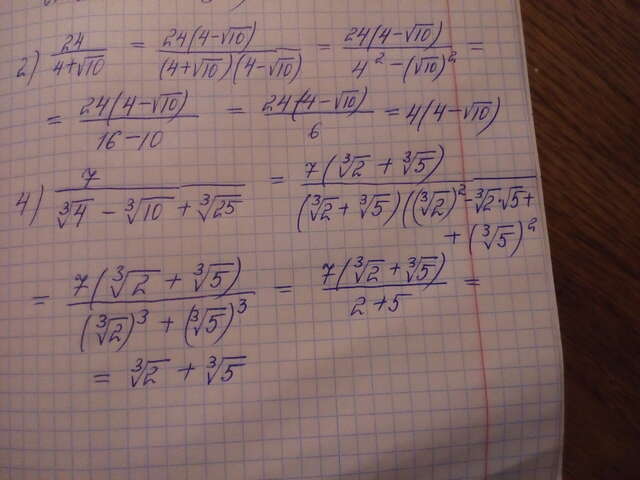 2) 24/(4+√10) = 24(4-√10)/((4+√10)(4-√10)) = 24(4-√10)/(4²-(√10)²) =
= 24(4-√10)/(16-10) = 24(4-√10)/6 = 4(4-√10)
4) 7/(∛4 - ∛10 + ∛25) = 7(∛2 + ∛5)/((∛2 + ∛5)((∛2)² - ∛2·√5 +
+ (∛5)²
= 7(∛2 + ∛5)/((∛2)³ + (∛5)³) = 7(∛2 + ∛5)/(2+5) =
= ∛2 + ∛5